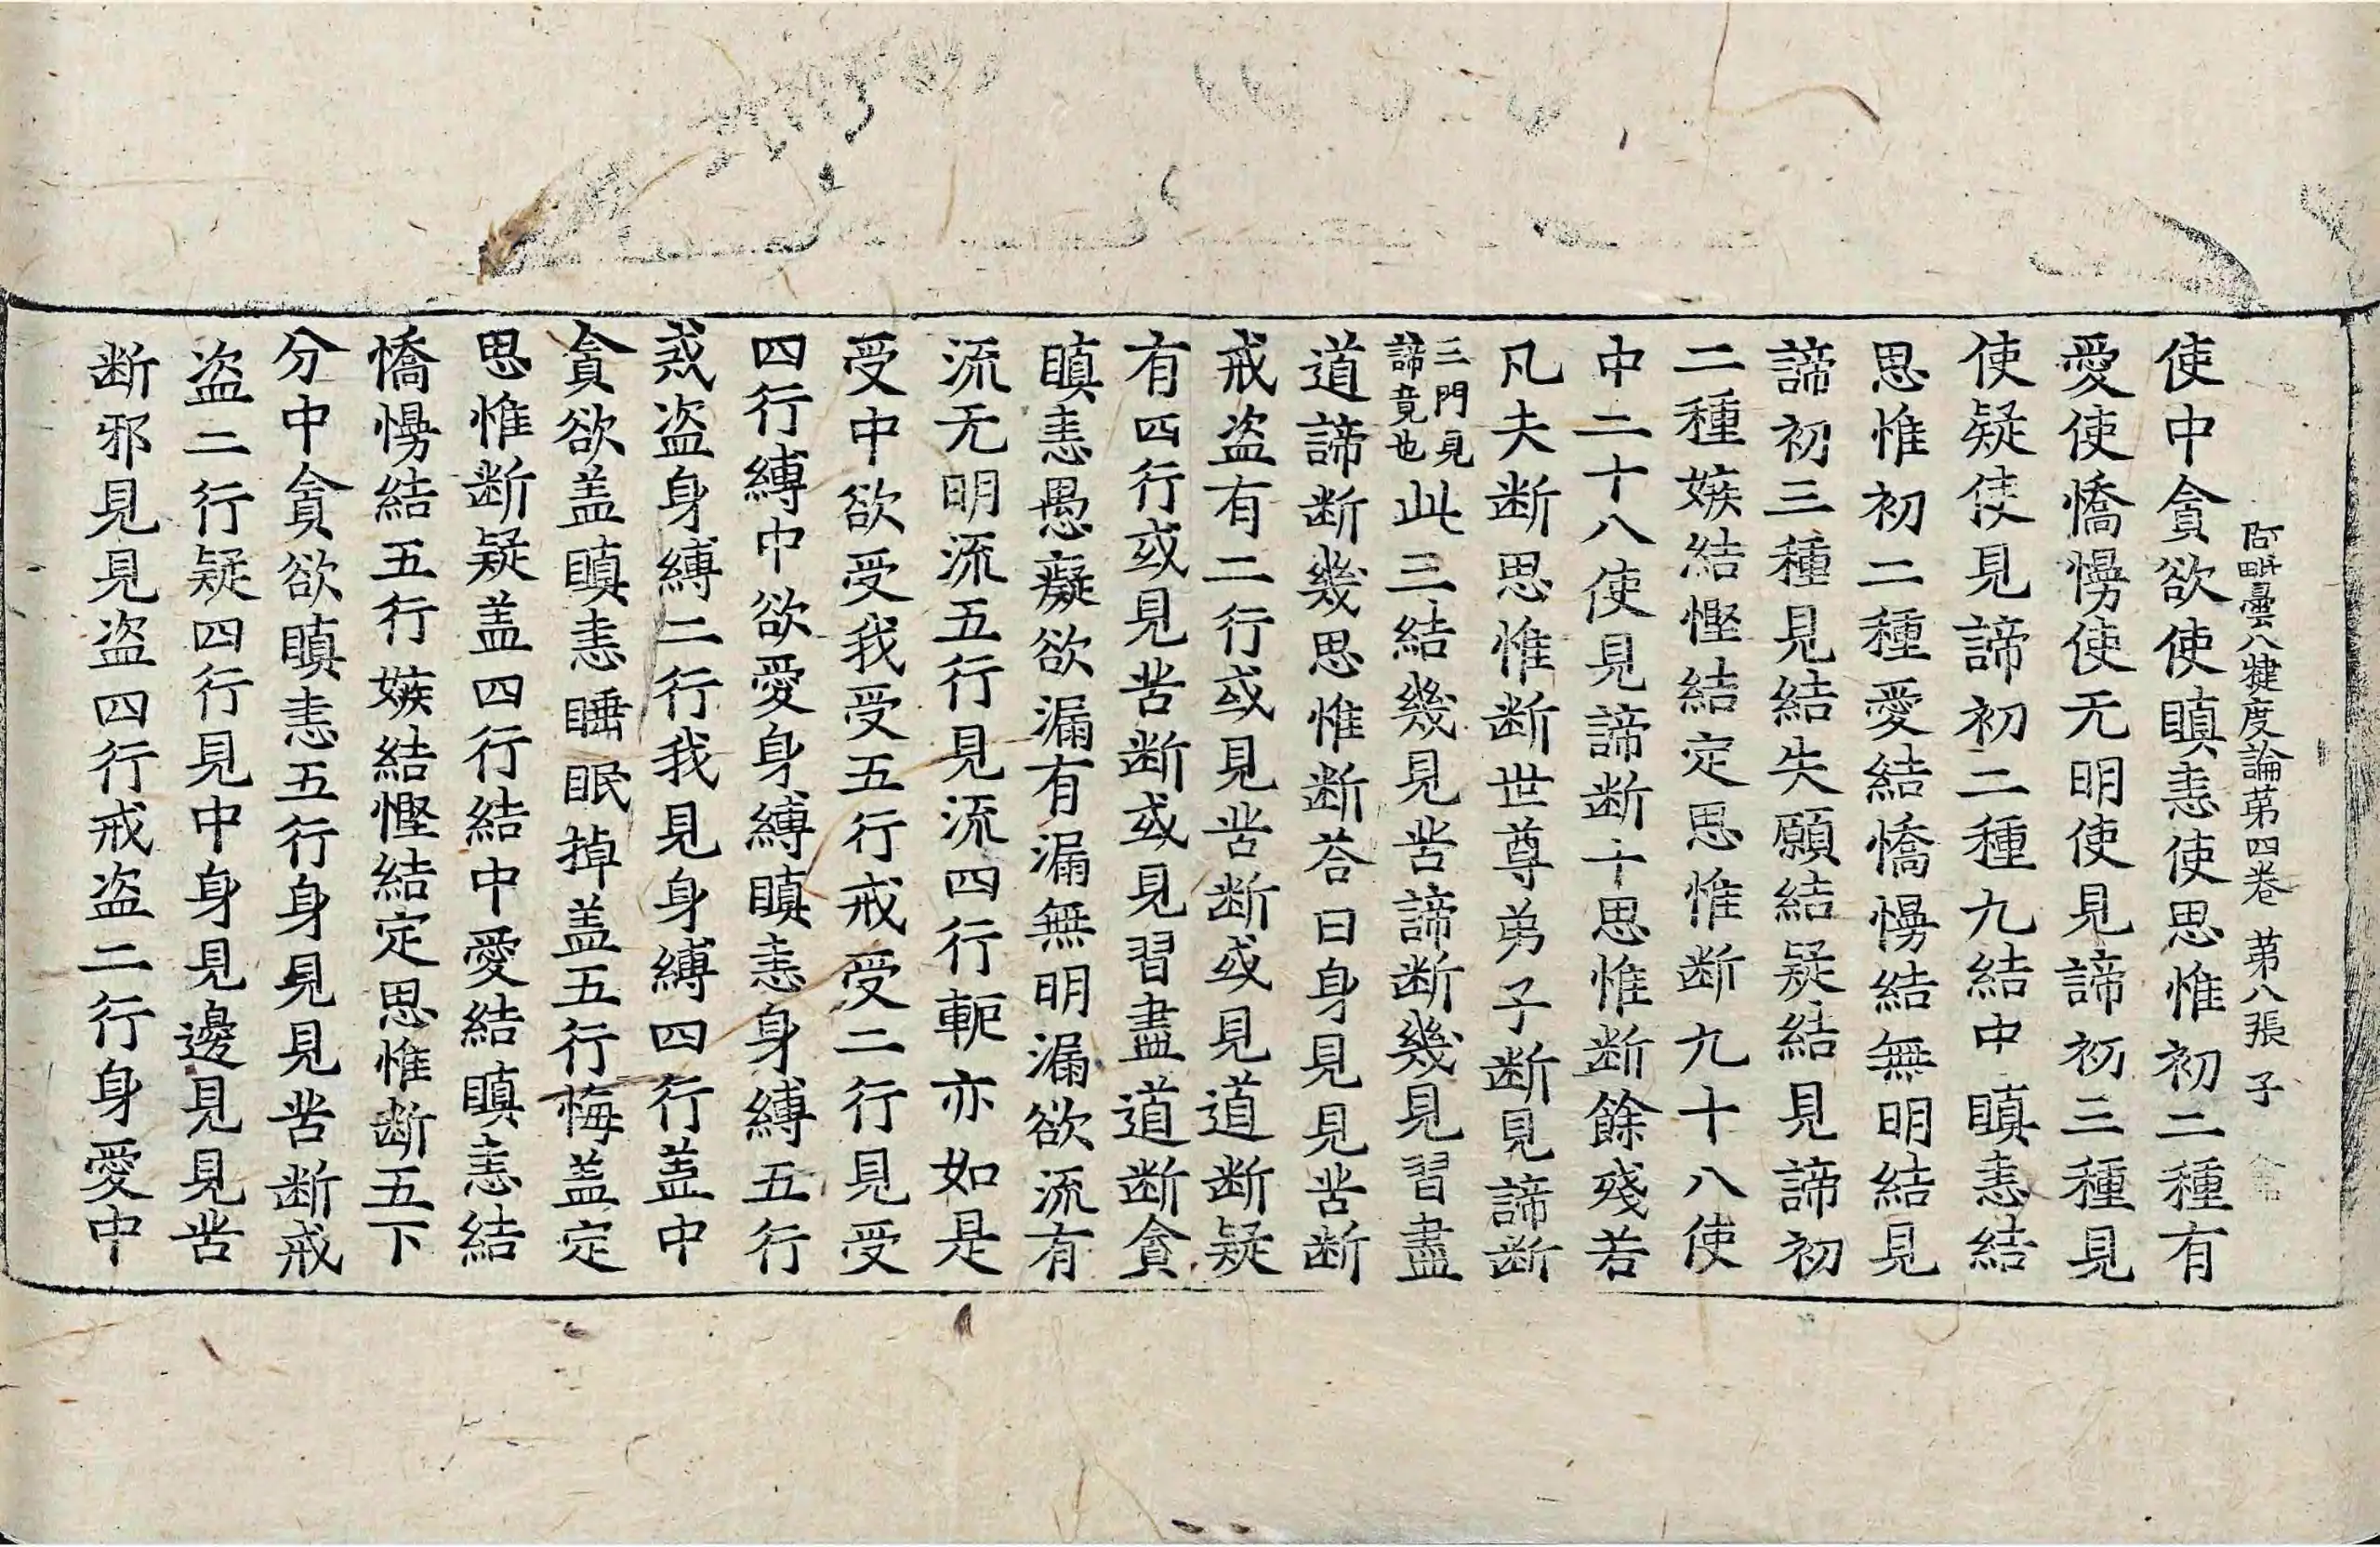 阿毗曇八犍度論苐四卷 苐八張 子
使中貪欲使瞋恚使思惟初二種有
愛使憍慢使无明使見諦初三種見
使疑使見諦初二種九結中瞋恚結
思惟初二種愛結憍慢結無明結見
諦初三種見結失願結疑結見諦初
二種嫉結慳結定思惟断九十八使
中二十八使見諦断十思惟断餘殘若
凡夫断思惟断世尊弟子断見諦断
三門見
諦竟也
此三結幾見苦諦断幾見習盡
道諦断幾思惟断荅曰身見見苦断
戒盗有二行或見苦断或見道断疑
有四行或見苦断或見習盡道断貪
瞋恚愚癡欲漏有漏無明漏欲流有
流无明流五行見流四行軛亦如是
受中欲受我受五行戒受二行見受
四行縛中欲愛身縛瞋恚身縛五行
戒盗身縛二行我見身縛四行盖中
貪欲盖瞋恚睡眠掉盖五行悔盖定
思惟断疑盖四行結中愛結瞋恚結
憍慢結五行嫉結慳結定思惟断五下
分中貪欲瞋恚五行身見見苦断戒
盗二行疑四行見中身見邊見見苦
断邪見見盗四行戒盗二行身愛中